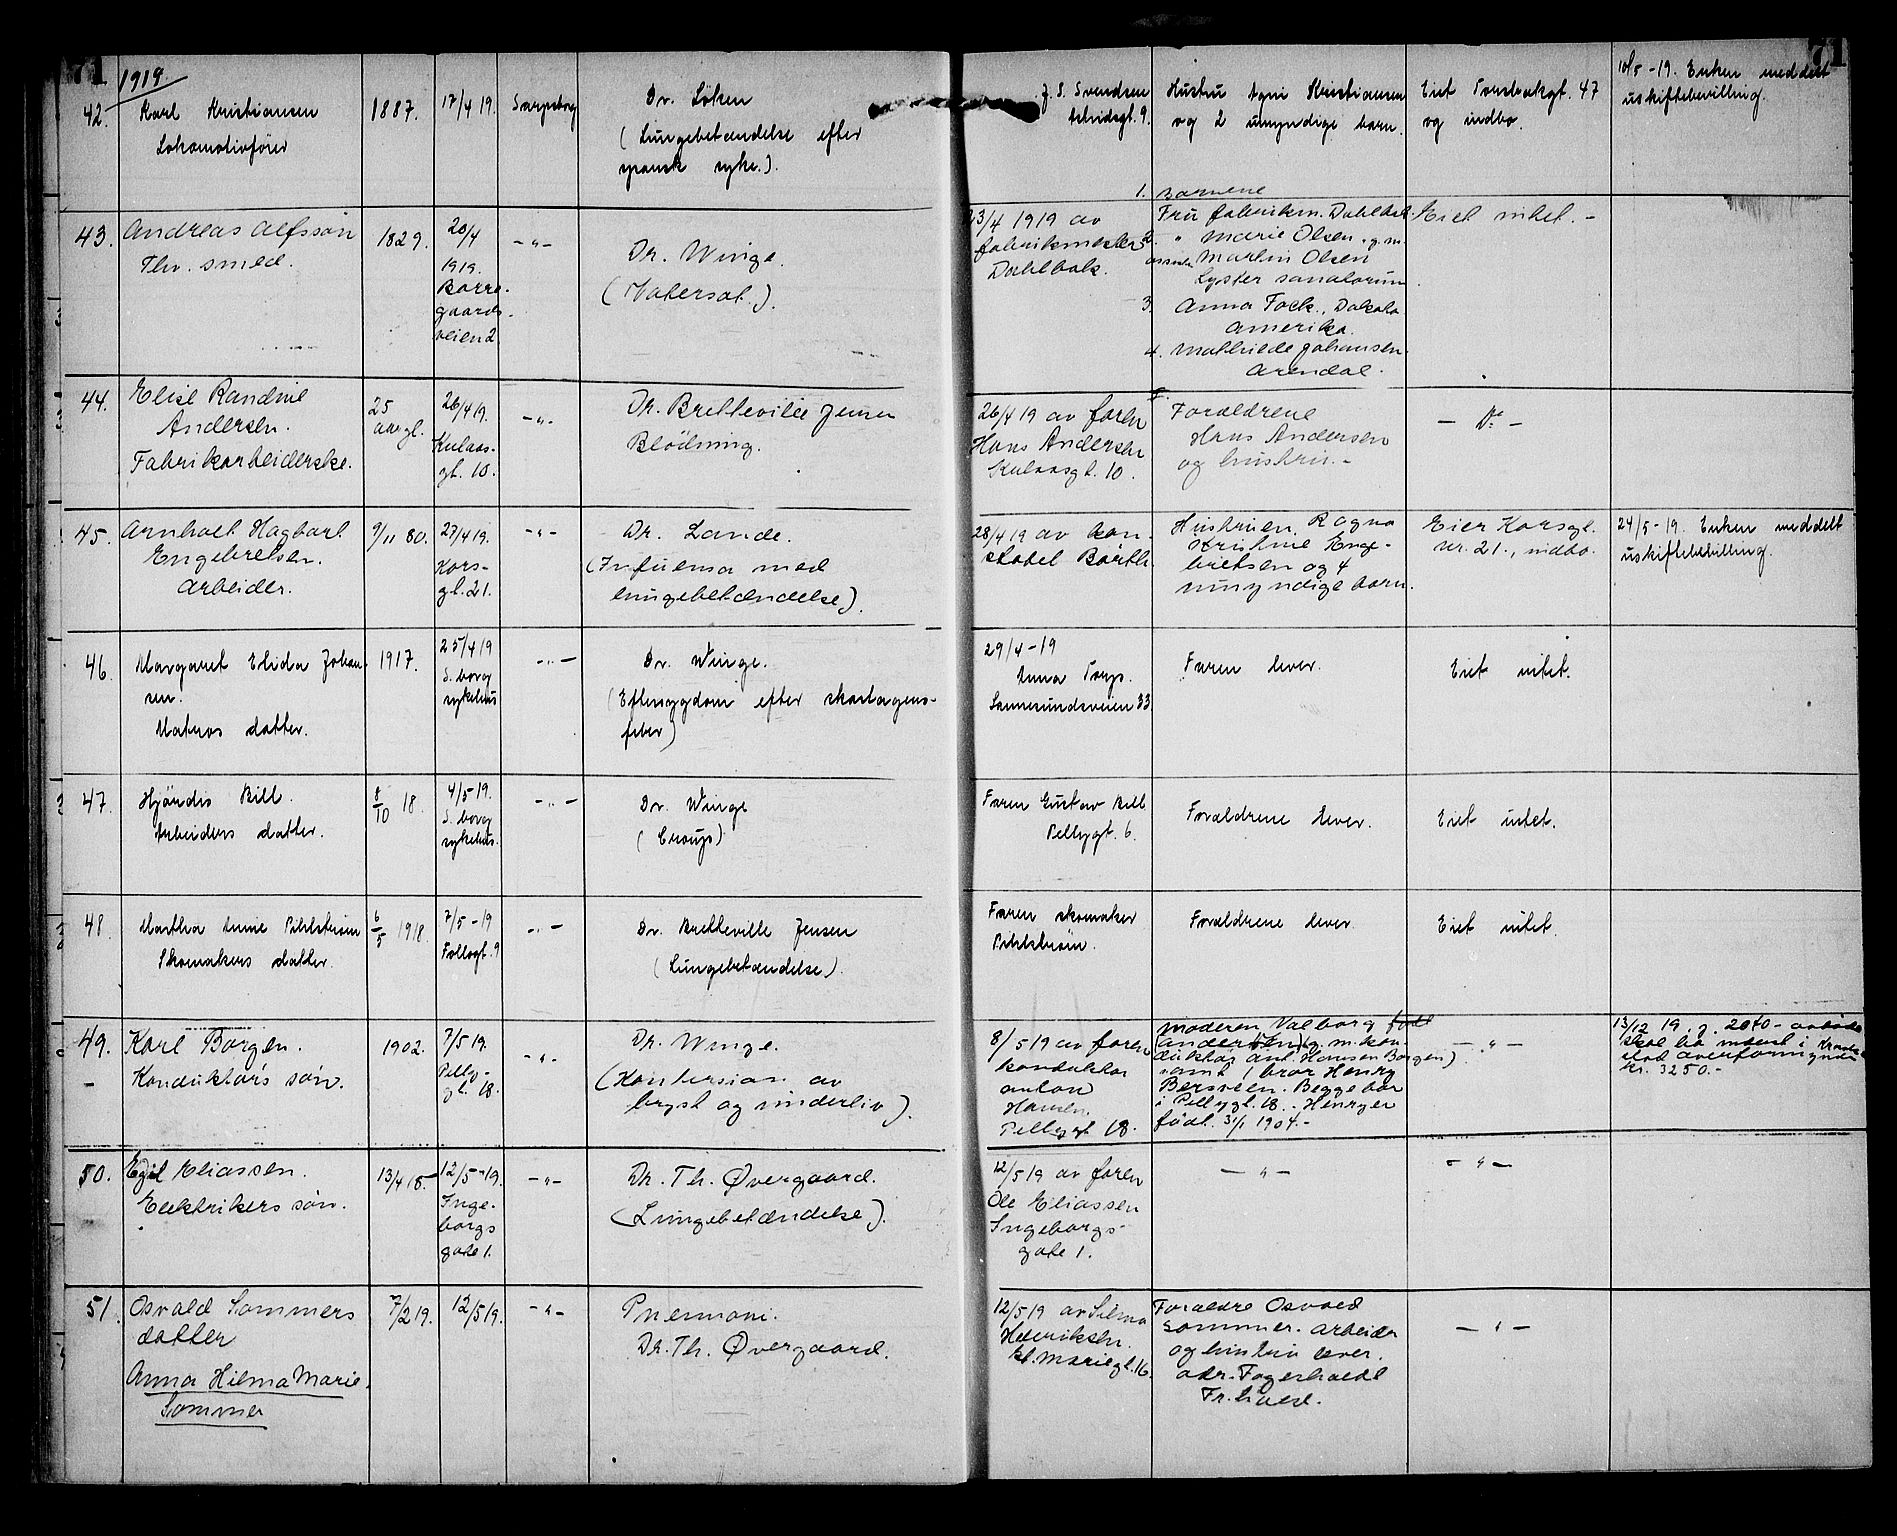 71
1919.
71
42.
Karl Kristiansen
Lokomotivfører
1887.
17/4 19.
Sarpsborg
Dr. Löken
(Lungebetændelse efter
spansk syke.).
J. S. Svendsen
9.
Hustru Agni Kristiansen
og 2 umyndige barn.
Eiet 47
og indbo.
10/5-19. Enken meddelt
uskiftebevilling.
43.
Andreas Alfssön
Fhv. smed.
1829.
20/4
1919.
Borre-
gaards-
veien 2.
-"-
Dr. Winge.
(Vatersot.).
23/4 1919 av
fabrikmester
Dahlbak.
1. Barnene
Fru fabrikm. Dahlbak.
2. " Marie Olsen, g.m.
Martin Olsen
Lyster sanatorium.
3. Anna Fock, Dakota
Amerika.
4. Mathilde Johansen.
Arendal.
Eiet intet. -
44.
Elise Randine
Andersen.
Fabrikarbeiderske.
25
aar gl.
26/4 19.
Kulaas-
gt. 10.
-"-
Dr. Bretteville Jensen
Blödning.
26/4 19 av faren
Hans Andersen
Kulaasgt. 10.
Forældrene
Hans Andersen
og hustru. -
- Do -
45.
Arnholt Hagbart
Engebretsen.
Arbeider.
9/11 80.
27/4 19.
Kors-
gt. 21.
-"-
Dr. Lande.
(Infuensa med
lungebetændelse).
28/4 19 av kon-
stabel Barth.
Hustruen Ragna
Kristine Enge-
bretsen og 4
umyndige barn.
Eier Korsgt.
nr. 21., indbo.
24/5-19. Enken meddelt
uskiftebevilling.
46.
Margaret Elida Johan-
sen.
Matros datter.
1917.
25/4 19
S. borg
sykehus
-"-
Dr. Winge.
(Eftersygdom efter skarlagens-
feber)
29/4-19
Anna
Sannesundsveien 33
Faren lever.
Eiet intet.
47.
Hjördis Bill.
Arbeiders datter.
8/10 18.
4/5-19.
S. borg
sykehus.
-"-
Dr. Winge
(Croup)
Faren Gustav Bill
Pellygt. 6.
Forældrene lever.
Eiet intet.
48.
Martha Anine Pihlström
Skomakers datter.
6/5 1918.
7/5-19
Follogt. 9
-"-
Dr. Bretteville Jensen
(Lungebetændelse).
Faren skomaker
Pihlström.
Forældrene lever
Eiet intet.
49.
Karl Borgen.
Konduktørs søn.
1902.
7/5 19.
Pelly-
gt. 18.
-"-
Dr. Winge.
(Kontusion av
bryst og underliv).
8/5 19 av faren
konduktør
Anton
Hansen.
Pellygt 18.
Moderen Valborg født
(Andersen) g. m. kon-
duktør Ant. Hansen Borgen)
samt 1 bror Henry
Bersvein. Begge bor
i Pellygt. 18. - Henry er
født. 31/1 1904. -
-"-
13/12 19. g. 2040 -
skal ha indsat i
stad overformynderi
kr. 3250. -
50.
Egil Eliassen.
Elektrikers søn.
13/4 18.
12/5-19.
Inge-
borgs
gate 1.
-"-
Dr. Th. Øvergaard.
(Lungebetændelse).
12/5 19 av faren
Ole Eliassen
Ingeborgs-
gate 1.
-"-
-"-
51.
Osvald Sommers
datter
Anna Hilma Marie.
Sommer
7/2 19.
12/5 19.
-"-
Pnermoni.
Dr. Th. Øvergaard.
12/5 19 av Hilma
Henriksen.
St. Mariegt. 16.
Forældre Osvald
Sommer. Arbeider
og hustru lever.
adr. Fagerholdt
Fr. hald.
-"-